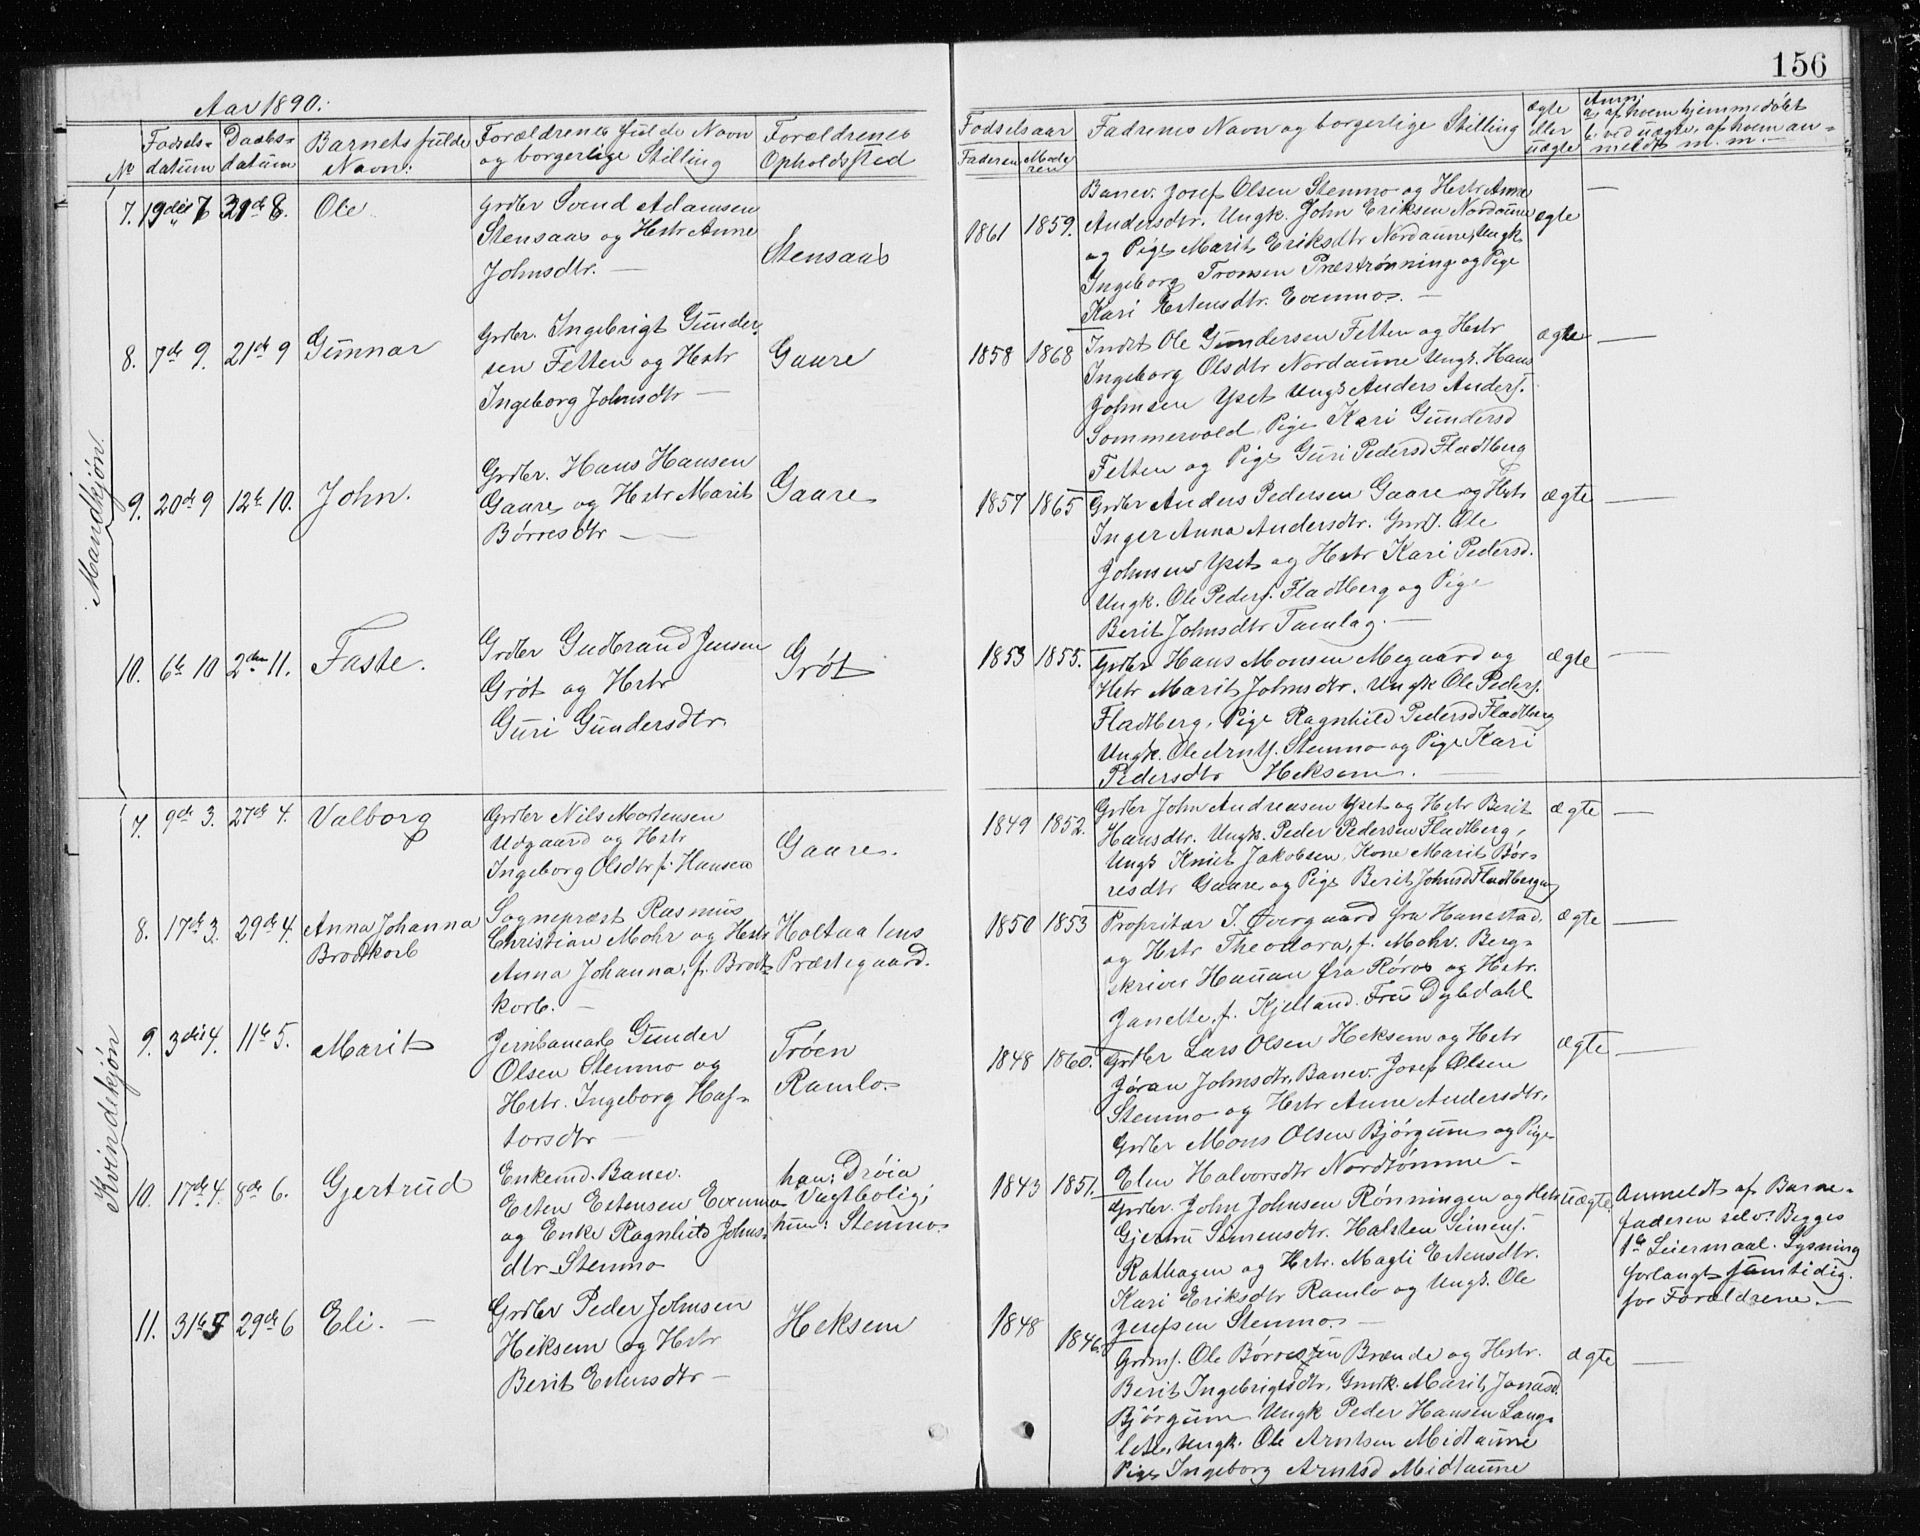 156
Aar 1890.
No
Fødsels-
datum
Daabs-
datum
Barnets fulde
Navn:
Forældrenes fulde Navn
og borgerlige Stilling
Forældrenes
Opholdssted
Fødselsaar
Faderen
Mode
ren
Fadrenes Navn og borgerlige Stilling
ægte
eller
uægte
Anm:
a, af hvem hjemmedøbt
b, ved uægte, af hvem an-
meldt m. m. —
Mandkjøn.
7.
Ole
Grdbr Svend Adamsen
Stensaas og Hstr Anne
Johnsdtr. —
Stensaas
1861
1859.
Banev. Josef Olsen Stenmo og Hstr Anne
Andersdtr. Ungk. John Eriksen Nordaune
og Pige Marit Eriksdtr Nordaune, Ungk
Ingeborg Tronsen Præstrønning og Pige
Kari Estensdtr. Evenmo. —
ægte
—
8.
7de 9.
21de 9
Gunnar
Grdbr. Ingebrigt Gunder
sen Fetten og Hstr
Ingeborg Johnsdtr —
Gaare
1858
1868
Indst Ole Gundersen Fetten og Hstr
Ingeborg Olsdtr Nordaune Ungk. Hans
Johnsen Yset Ungk Anders Anders.
Sommervold, Pige Kari Gundersd
Fetten og Pige Guri Pedersd Fladberg
ægte
—
9.
20de 9
12te 10.
John.
Grdbr. Hans Hansen
Gaare og Hstr Marit
Børresdtr —
Gaare
1857
1865
Grdbr Anders Pedersen Gaare og Hstr
Inger Anna Andersdtr. Grds. Ole
Johnsen Yset og Hstr Kari Pedersd.
Ungk. Ole Peders. Fladberg og Pige
Berit Johnsdtr Tamlag. —
ægte
—
10.
6te 10
2den 11.
Faste.
Grdbr Gudbrand Jensen
Grøt og Hstr
Guri Gundersdtr.
Grøt
1853
1855.
Grdbr Hans Monsen Megaard og
Hstr Marit Johnsdtr. Ungk Ole Peders.
Fladberg, Pige Ragnhild Pedersd Fladberg
Ungk. Ole Arnts. Stenmo og Pige Kari
Pedersdtr Heksem. —
ægte
—
Kvindekjøn
7.
9de 3.
27de 4.
Valborg
Grdbr Nils Mortensen
Udgaard og Hstr
Ingeborg Olsdtr f. Hansen
Gaare.
1849
1852.
Grdbr John Andreasen Yset og Hstr Berit
Hansdtr. Ungk. Peder Pedersen Fladberg,
Ungk Knut Jakobsen, Kone Marit Bør-
resdtr Gaare og Pige Berit Johnsd Fladberg
ægte
—
8.
17de 3.
29de 4.
Anna Johanna
Brodtkorb
Sognepræst Rasmus
Christian Mohr og Hstr
Anna Johanna, f. Brodt
korb. —
Holtaalens
Præstegaard.
1850
1853
Propritær I. Øvergaard fra Hanestad,
og Hstr Theodora, f. Mohr. Berg-
skriver Hauan fra Røros og Hstr.
Janette, f. Kjelland. Fru Dybdahl
ægte
—
9.
3die 4.
11te 5.
Marit
Jernbanearb Gunder
Olsen Stenmo og
Hstr. Ingeborg Haf-
torsdtr —
Trøen
Ramlo.
1848
1860.
Grdbr Lars Olsen Heksem og Hstr
Jøran Johnsdtr, Banev. Josef Olsen
Stenmo og Hstr Anne Andersdtr,
Grdbr Mons Olsen Bjørgum og Pige
Elen Halvorsdtr Nordtømme —
ægte
—
10.
17de 4.
8de 6.
Gjertrud
Enkemd. Banev.
Esten Estensen Evenmo
og Enke Ragnhild Johns-
dtr Stenmo
han: Drøia
Vagtbolig;
hun: Stenmo.
1843
1851.
Grdbr. John Johnsen Rønningen og Hstr
Gjertru Simensdtr. Halsten Simens.
Rathagen og Hstr. Magli Estensdtr.
Kari Eriksdtr Ramlo og Ungk. Ole
Josefsen Stenmo. —
uægte
Anmeldt af Barne-
faderen selv. Begges
1te Leiermaal. Lysning
forlangt samtidig.
for Forældrene. —
11.
29de 6
Eli. —
Grdbr Peder Johnsen
Heksem og Hstr
Berit Estensdtr —
Heksem
1848
1846.
Grdms. Ole Børresen Brænde og Hstr.
Berit Ingebrigtsdtr, Gmdk. Marit Jonasd.
Bjørgum Ungk Peder Hansen Lang-
lete, Ungk. Ole Arntsen Midtaune
Pige Ingeborg Arntsd Midtaune
ægte
—